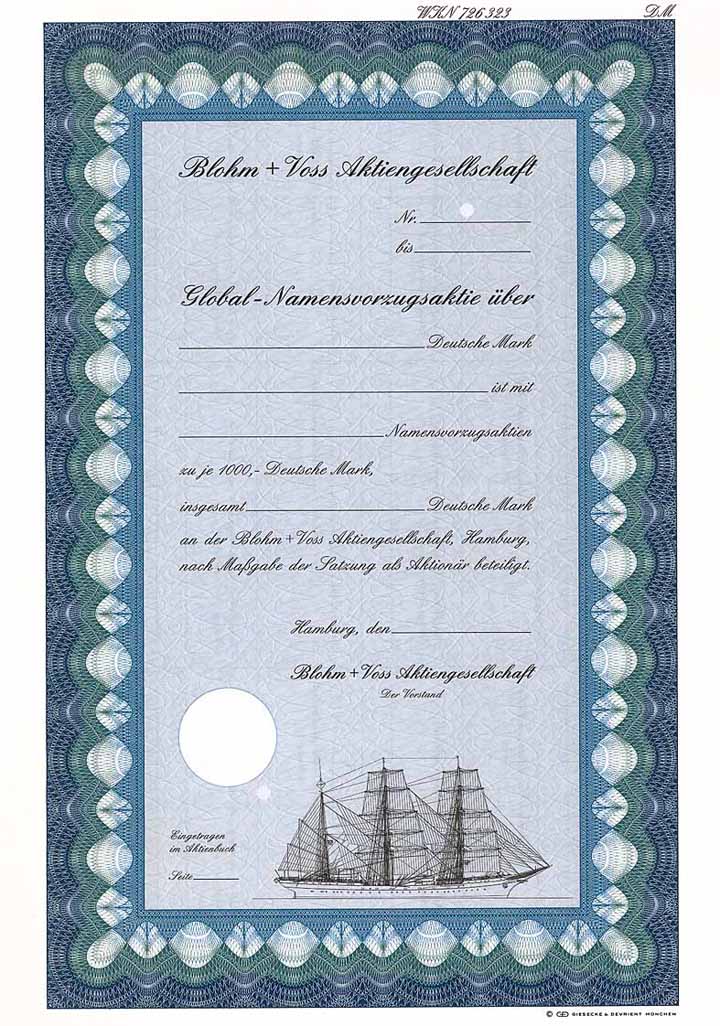 WKN 726 323 DM
Blohm + Voss Aktiengesellschaft
Nr.
bis
Global-Namensvorzugsaktie über
Deutsche Mark
ist mit
Namensvorzugsaktien
zu je 1000,- Deutsche Mark,
insgesamt Deutsche Mark
an der Blohm + Voss Aktiengesellschaft, Hamburg,
nach Maßgabe der Satzung als Aktionär beteiligt.
Hamburg, den
Blohm + Voss Aktiengesellschaft
Der Vorstand
Eingetragen
im Aktienbuch
Seite
© GD GIESECKE & DEVRIENT MÜNCHEN